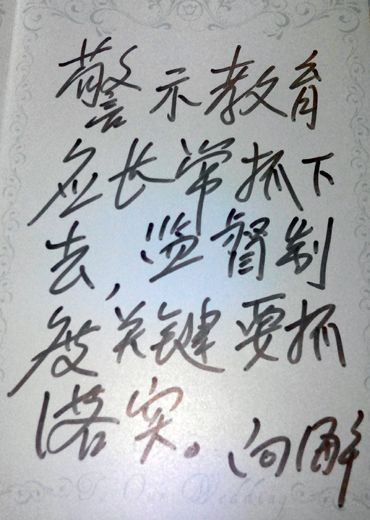 警示教育
应长常抓下
去，监督制
度关键要抓
落实。向解
To Our Wedding